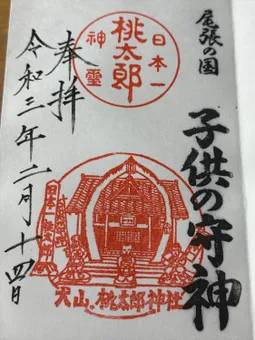 尾張の国
子供の守神
日本一
桃太郎
神璽
犬山、桃太郎神社
奉拝
令和三年二月十四日